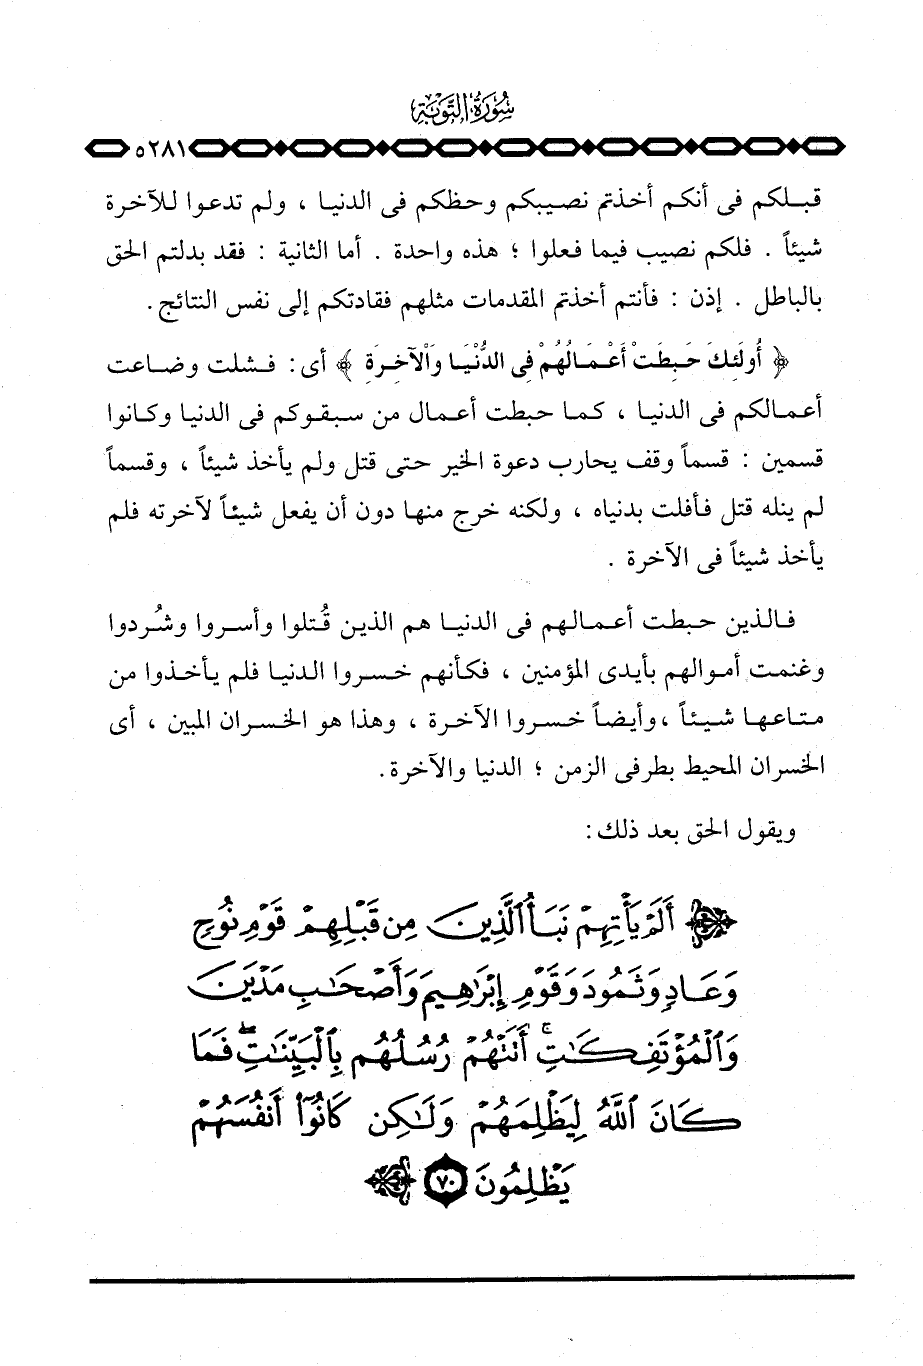 سُورَةُ التَّوْبَةِ
٥٢٨١
قبـلكم فى أنكم أخذتم نصيبكم وحظكم فى الدنيـا ، ولم تدعـوا للآخرة
شيئاً . فلكم نصيب فيما فعلوا ؛ هذه واحدة . أما الثانية : فقد بدلتم الحق
بالباطل . إذن : فأنتم أخذتم المقدمات مثلهم فقادتكم إلى نفس النتائج .
﴿ أُولَئِكَ حَبِطَتْ أَعْـمَـالُهُمْ فِى الدُّنْيَـا وَالْآخِرَةِ ﴾ أى : فـشلت وضـاعت
أعـمـالكم فى الدنيـا ، كـمـا حبطت أعـمـال من سـبـقـوكم فى الدنيا وكـانوا
قسمين : قسمـاً وقف يحارب دعوة الخير حتى قتل ولم يأخذ شيئاً ، وقسمـاً
لم ينله قتل فـأفلت بدنياه ، ولكنه خرج منهـا دون أن يفعل شيئـاً لآخرته فلم
يأخذ شيئاً فى الآخرة .
فـالذين حـبطت أعـمـالهم فى الدنيـا هم الذين قُـتلوا وأسـروا وشُردوا
وغنمت أمـوالهم بأيدى المؤمنين ، فكـأنهم خـسـروا الدنيـا فلم يـأخـذوا من
متـاعهـا شـيـئـاً ، وأيضـاً خسـروا الآخـرة ، وهـذا هو الخـسـران المبين ، أى
الخسران المحيط بطرفى الزمن ؛ الدنيا والآخرة .
ويقول الحق بعد ذلك :
﴿ أَلَمْ يَأْتِهِمْ نَبَأُ ٱلَّذِينَ مِن قَبْلِهِمْ قَوْمِ نُوحٍ
وَعَادٍ وَثَمُودَ وَقَوْمِ إِبْرَٰهِيمَ وَأَصْحَٰبِ مَدْيَنَ
وَٱلْمُؤْتَفِكَٰتِ ۚ أَتَتْهُمْ رُسُلُهُم بِٱلْبَيِّنَٰتِ ۖ فَمَا
كَانَ ٱللَّهُ لِيَظْلِمَهُمْ وَلَٰكِن كَانُوٓا۟ أَنفُسَهُمْ
يَظْلِمُونَ ٧٠ ﴾